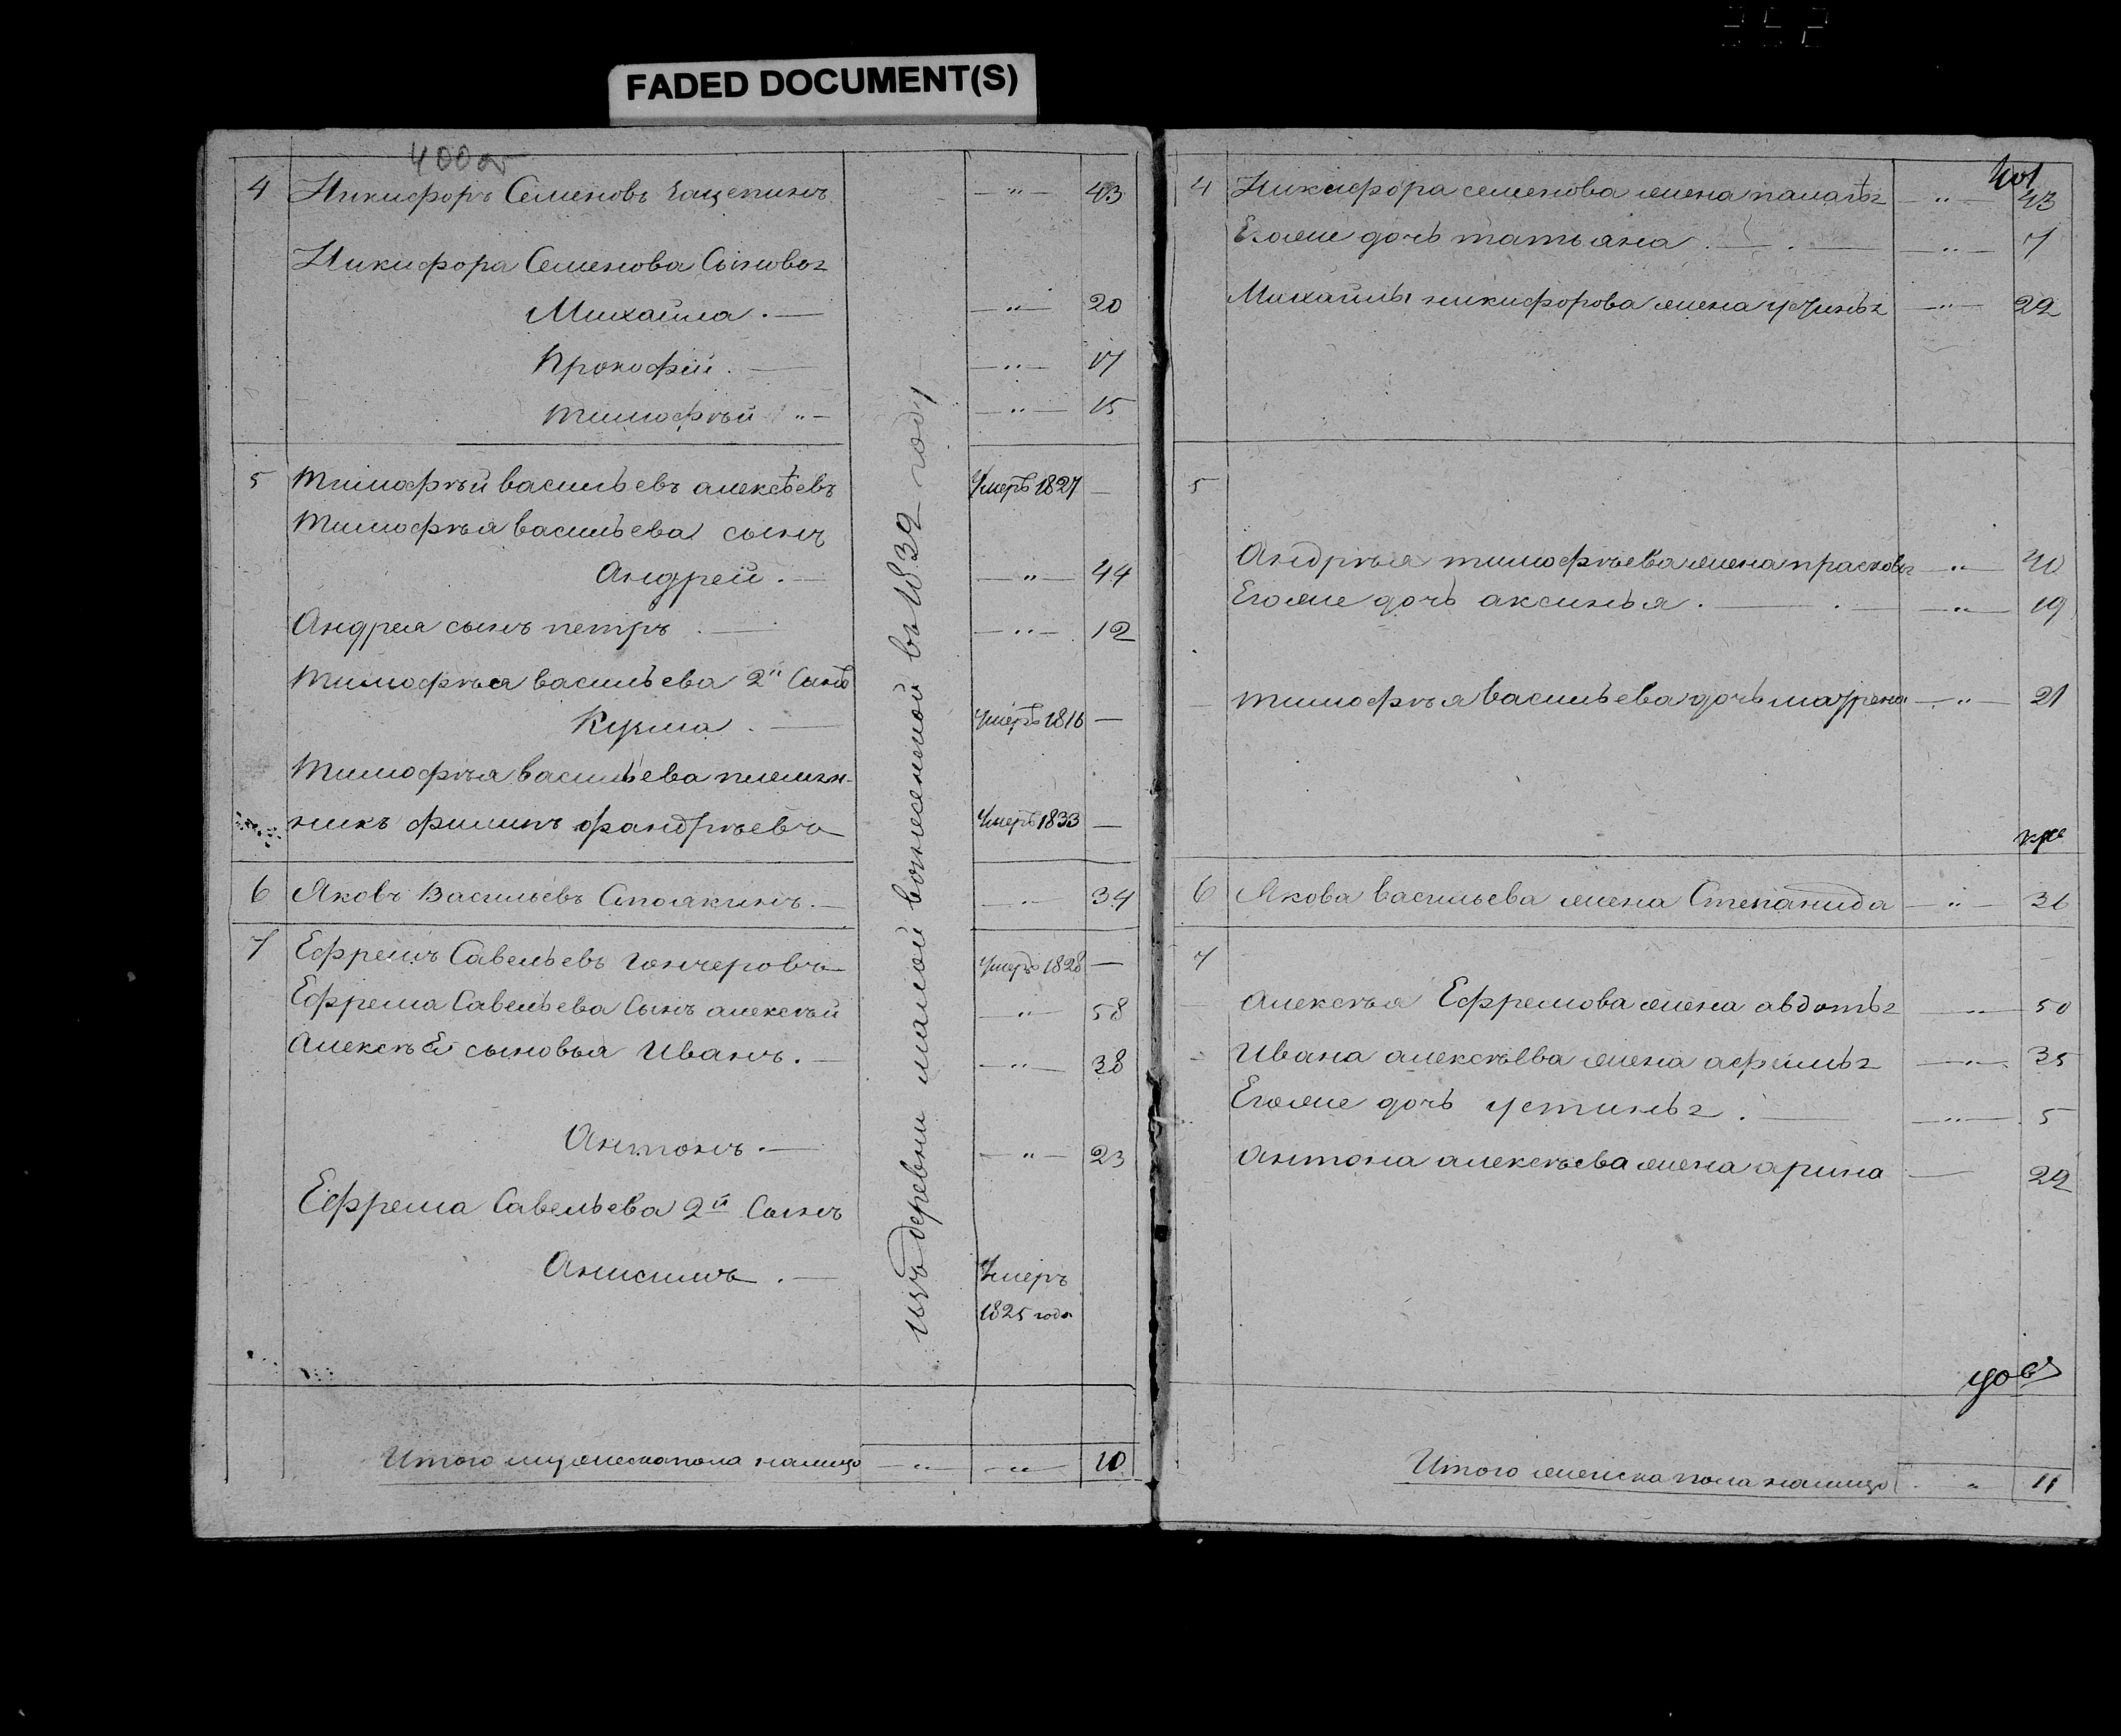 FADED DOCUMENT(S)
400 об
4 Никифоръ Семеновъ Гащепинъ — " — 43
Никифора Семенова Сыновья
Михайла . — — " — 20
Прокофiй . — — " — 17
Тимофѣй " — — " — 15
5 Тимофѣй васильевъ алексѣевъ Умеръ 1827 —
Тимофѣя васильева сынъ
Андрей . — — " — 44
Андрея сынъ петръ . — — " — 12
Тимофѣя васильева 2й Сынъ
Кузма . — Умеръ 1816 —
Тимофѣя васильева племян-
никъ филипъ фандрѣевъ Умеръ 1833 —
6 Яковъ Васильевъ Столякинъ . — — " — 34
7 Ефремъ Савельевъ гончеровъ Умеръ 1828 —
Ефрема Савельева Сынъ алексѣй — " — 58
Алексѣя сыновья Иванъ . — — " — 38
Антонъ . — — " — 23
Ефрема Савельева 2й Сынъ
Анисимъ . — Умеръ
1825 года
изъ деревни малой вознесенной въ 1832 году
Итого мужеска пола налицо — " — — " — 10
401
4 Никифора семенова жена палагѣя — " — 43
Егоже дочь татьяна . — . — — " — 7
Михайлы никифорова жена устинья — " — 22
5
Андрѣя тимофѣева жена прасковья — " — 40
Егоже дочь аксинья . — . — — " — 19
Тимофѣя васильева дочь мавра — " — 21
6 Якова васильева жена Степанида — " — 36
7
Алексѣя Ефремова жена авдотья — " — 50
Ивана алексѣева жена афимья — " — 35
Егоже дочь устинья . — — " — 5
Антона алексѣева жена арина — 22
Итого женска пола налицо " 11